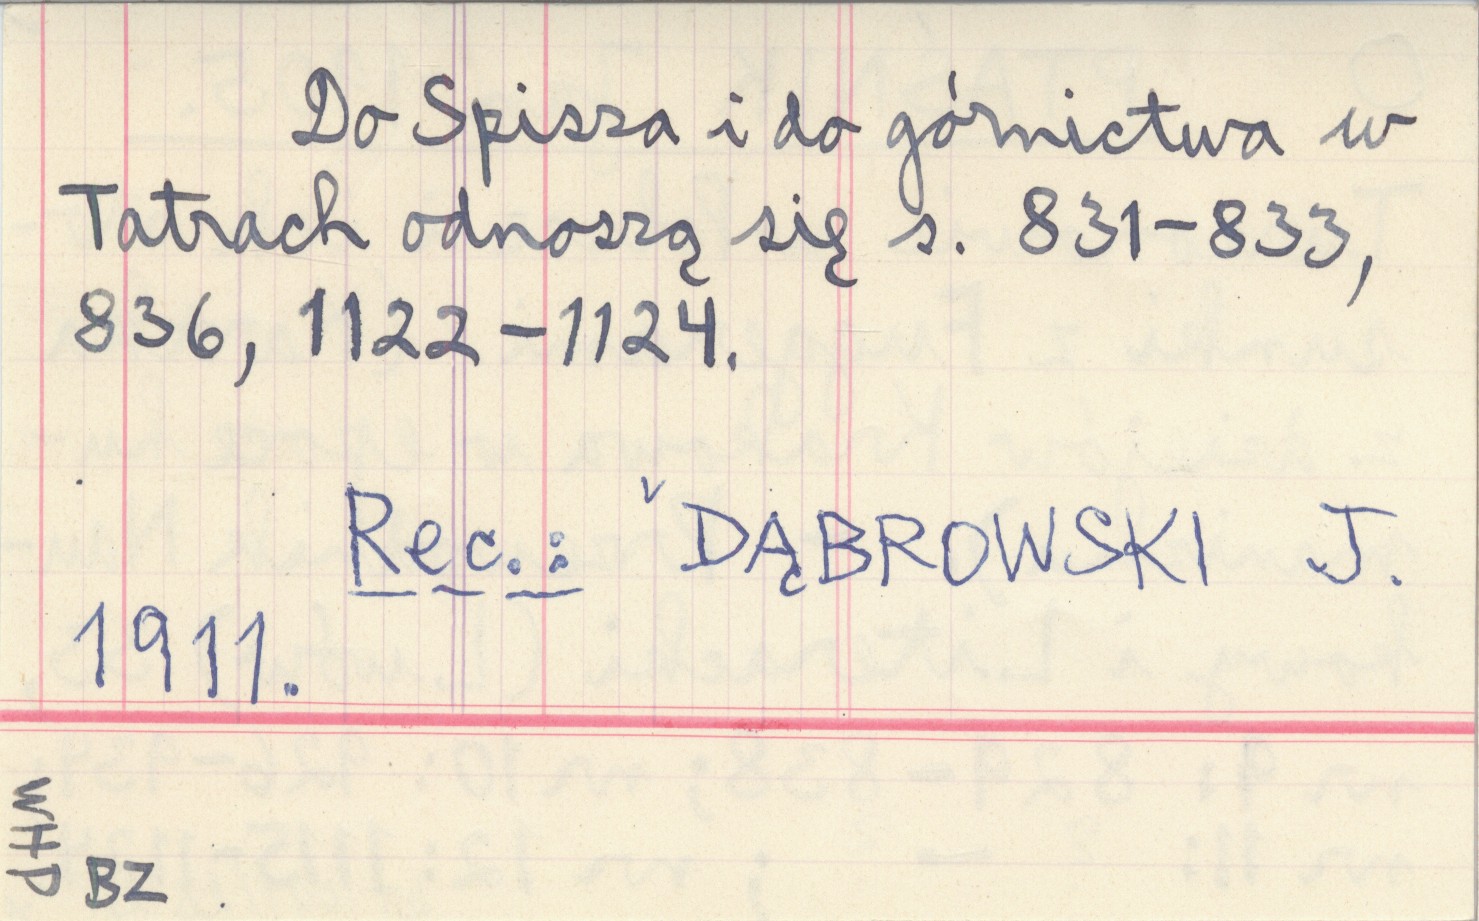 Do Spisza i do górnictwa w
Tatrach odnoszą się s. 831-833,
836, 1122-1124.
Rec.: ˇDĄBROWSKI J.
1911.
WHP
BZ